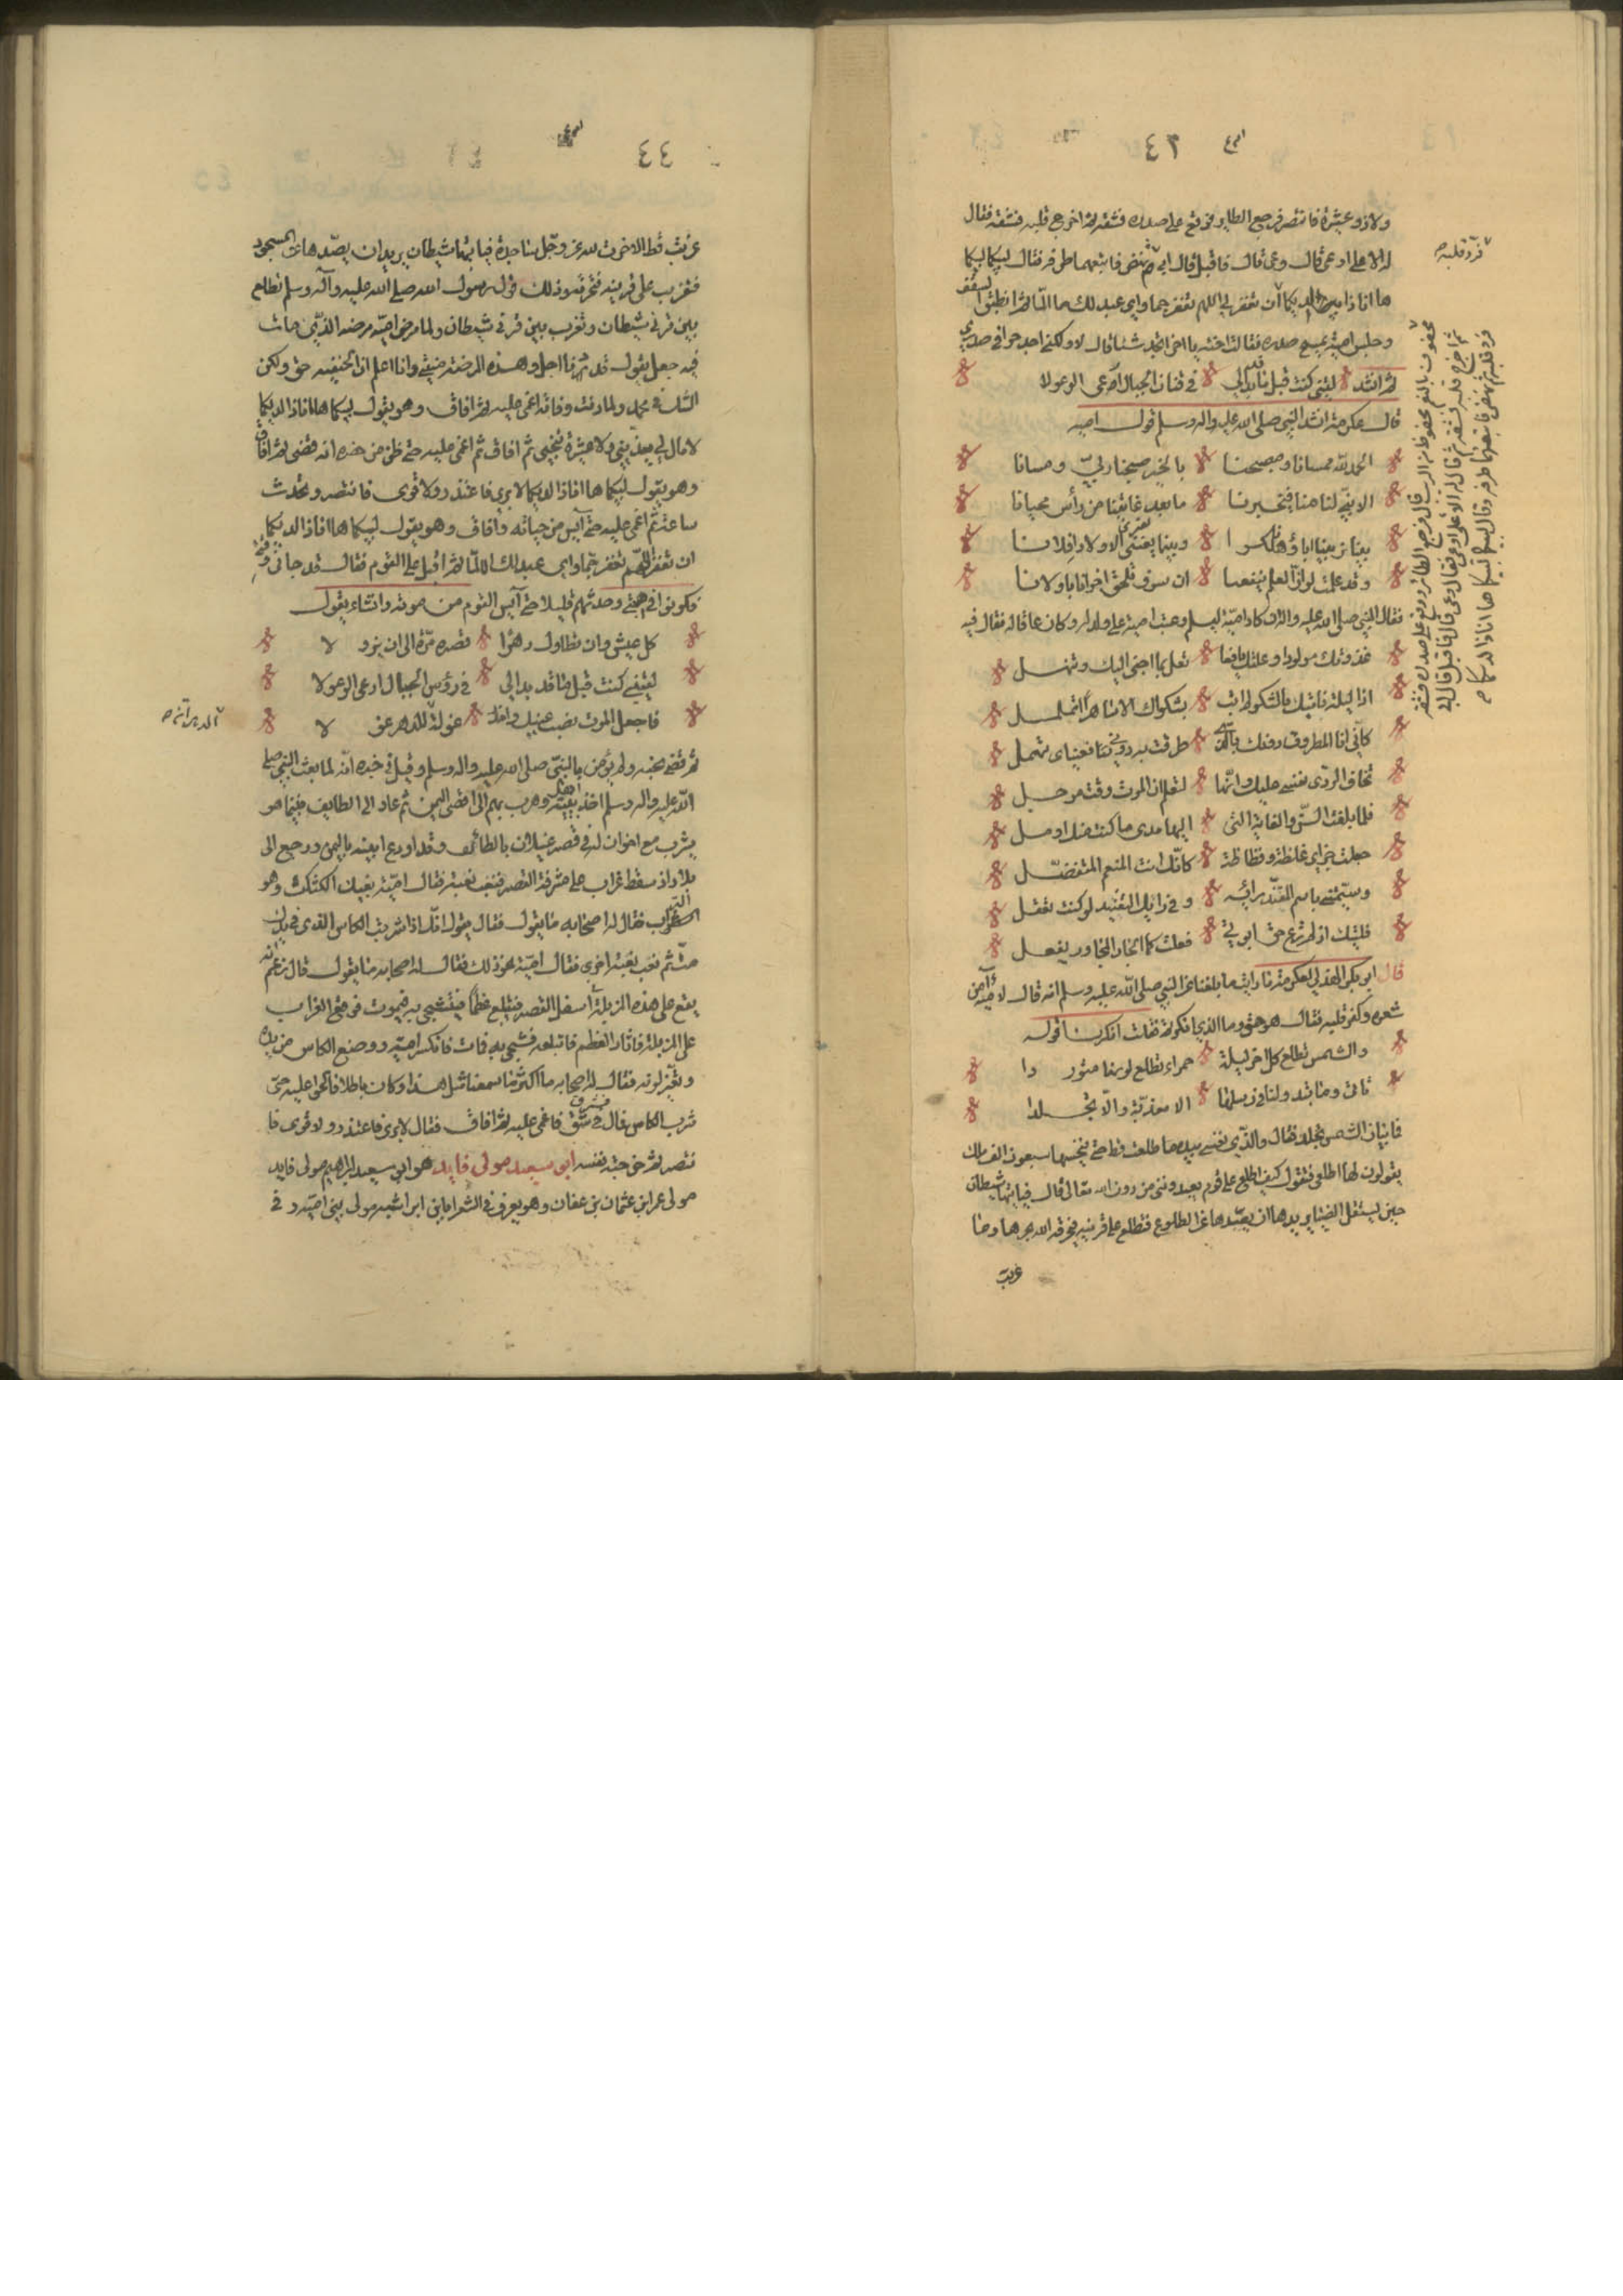 ٤٣
ولا ذو عشيرة فانتصر فرجع الطاير فوقع على صدره فشقه ثم اخرج قلبه فشقه فقال
له الاعلى اوعى قال وعى قال فاقبل قال ابى ثم نهض فاتبعهما طرفه فقال لبيكما لبيكما
ها انا ذا لديكما ان تغفر اللهم تغفر جما واي عبد لك لا الما ثم انطبق السقف
وجلس امية يمسح صدره فقالت اخته يا اخي اتجد شيئا قال لا ولكني اجد حرا في صدري
ثم انشد ليتني كنت قبل ما قد بدا لي في قنان الجبال ارعى الوعولا
قال عكرمة انشد النبي صلى الله عليه واله وسلم قول امية
الحمد لله ممسانا ومصبحنا بالخير صبحنا ربي ومسانا
الا نبي لنا منا فيخبرنا ما بعد غايتنا من رأس محيانا
بينا يربيبنا اباؤنا هلكوا وبينا نقتني الاولاد افلانا
وقد علمت لو ان العلم ينفعنا ان سوف تلحق اخرانا باولانا
فقال النبي صلى الله عليه واله ان كاد امية ليسلم وعتب امية على ولد له وكان عاقا له فقال فيه
غذوتك مولودا وعلتك يافعا تعل بما اجني اليك وتنهل
اذا ليلة نابتك بالشكو لم ابت بشكواك الا ساهرا اتململ
كاني انا المطروق دونك بالذي طرقت به دوني فعيناي تهمل
تخاف الردى نفسي عليك وانها لتعلم ان الموت وقت موجل
فلما بلغت السن والغاية التي اليها مدى ما كنت فيك اومل
جعلت جزاي غلظة وفظاظة كانك انت المنعم المتفضل
وسميتني باسم المفند رايه وفي رايك التفنيد لو كنت تعقل
فليتك اذ لم ترع حق ابوتي فعلت كما الجار المجاور يفعل
قال ابو بكر الهذلي لعكرمة ما رايت ما يبلغنا عن النبي صلى الله عليه وسلم انه قال لامية آمن
شعره وكفر قلبه فقال هو حق وما الذي انكرتم فقلت انكرنا قوله
والشمس تطلع كل اخر ليلة حمراء تطلع لونها متور دا
تابى وما تبدو لنا في رسلها الا معذبة والا تجلد
فما شان الشمس تجلد فقال والذي نفسي بيده ما طلعت قط حتى ينخسها سبعون الف ملك
يقولون لها اطلعي فتقول كيف اطلع على قوم يعبدونني من دون الله تعالى قال فياتيها شيطان
حين يستقل الضياء يريد ان يصدها عن الطلوع فتطلع على قرنيه فيحرقه الله بحرها وما
غربت
فرد قلبه
محفوف بالنعم محفوظ من الريب قال فرجع الطائر ووقع على صدره فشقه
ثم اخرج قلبه فشقه ثم قال له الاعلى اوعى فقال وعى قال فاقبل قال ابى
فرد قلبه ثم نهض فاتبعهما طرفه وقال لبيكما لبيكما ها انا ذا لديكما
٤٤
غربت قط الا خرت لله عز وجل ساجدة فياتيها شيطان يريد ان يصدها عن السجود
فتغرب على قرنيه فتحرقه وذلك قول رسول الله صلى الله عليه وآله وسلم تطلع
بين قرني شيطان وتغرب بين قرني شيطان ولما مرض امية مرضه الذي مات
فيه جعل يقول قد دنا اجلي وهذه المرضة منيتي وانا اعلم ان الحنيفية حق ولكن
الشك في محمد ولما دنت وفاته اغمي عليه ثم افاق وهو يقول لبيكما ها انا ذا لديكما
لا مال لي يفديني ولا عشيرة تنجيني ثم افاق ثم اغمي عليه حتى ظن من حضره انه قضى ثم افاق
وهو يقول لبيكما ها انا ذا لديكما لا بري فاعتذر ولا قوي فانتصر وتحدث
ساعة ثم اغمي عليه حتى آيس من حياته وافاق وهو يقول لبيكما ها انا ذا لديكما
ان تغفر اللهم تغفر جما واي عبد لك لا الما ثم اقبل على القوم فقال قد جا وقتي
فكونوا في اهبتي وحدثهم قليلا حتى آيس القوم من موته وانشاء يقول
كل عيش وان تطاول دهرا قصره مرة الى ان يزو لا
ليتني كنت قبل ما قد بدا لي في رؤس الجبال ارعى الوعولا
فاجعل الموت نصب عينيك واحذر غولة للدهر غو لا
ثم قضى نحبه ولم يؤمن بالنبي صلى الله عليه واله وسلم وقيل في خبره انه لما بعث النبي صلى
الله عليه واله وسلم اخذ ابنتيه وهرب بهم الى اقصى اليمن ثم عاد الى الطايف فبينما هو
يشرب مع اخوان له في قصر غيلان بالطائف وقد اودع ابنيه باليمن ورجع الى
بلاده اذ سقط غراب على شرفة القصر فنعب نعبة فقال امية بفيك الكثكث وهو
التراب فقال له اصحابه ما يقول فقال يقول انك اذا شربت الكاس الذي في يدك
مت ثم نعب نعبة اخرى فقال امية نحو ذلك فقال له اصحابه ما يقول قال زعم انه
يقع على هذه المزبلة اسفل القصر فيبتلع عظما فيشجى به فيموت فوقع الغراب
على المزبلة فاثار العظم فابتلعه فشجي به فمات فانكسر امية ووضع الكاس من يده
وتغير لونه فقال له اصحابه ما اكثر ما سمعنا مثل هذا وكان باطلا فالحوا عليه حتى
شرب الكاس فمال في شق فاغمي عليه ثم افاق فقال لا بري فاعتذر ولا قوي فا
نتصر ثم خرجت نفسه ابي سعيد مولى فايد هو ابي سعيد ابراهيم مولى فايد
مولى عمر ابن عثمان بن عفان وهو يعرف في الشعرا بابن ابي اشبه مولى بني امية و في